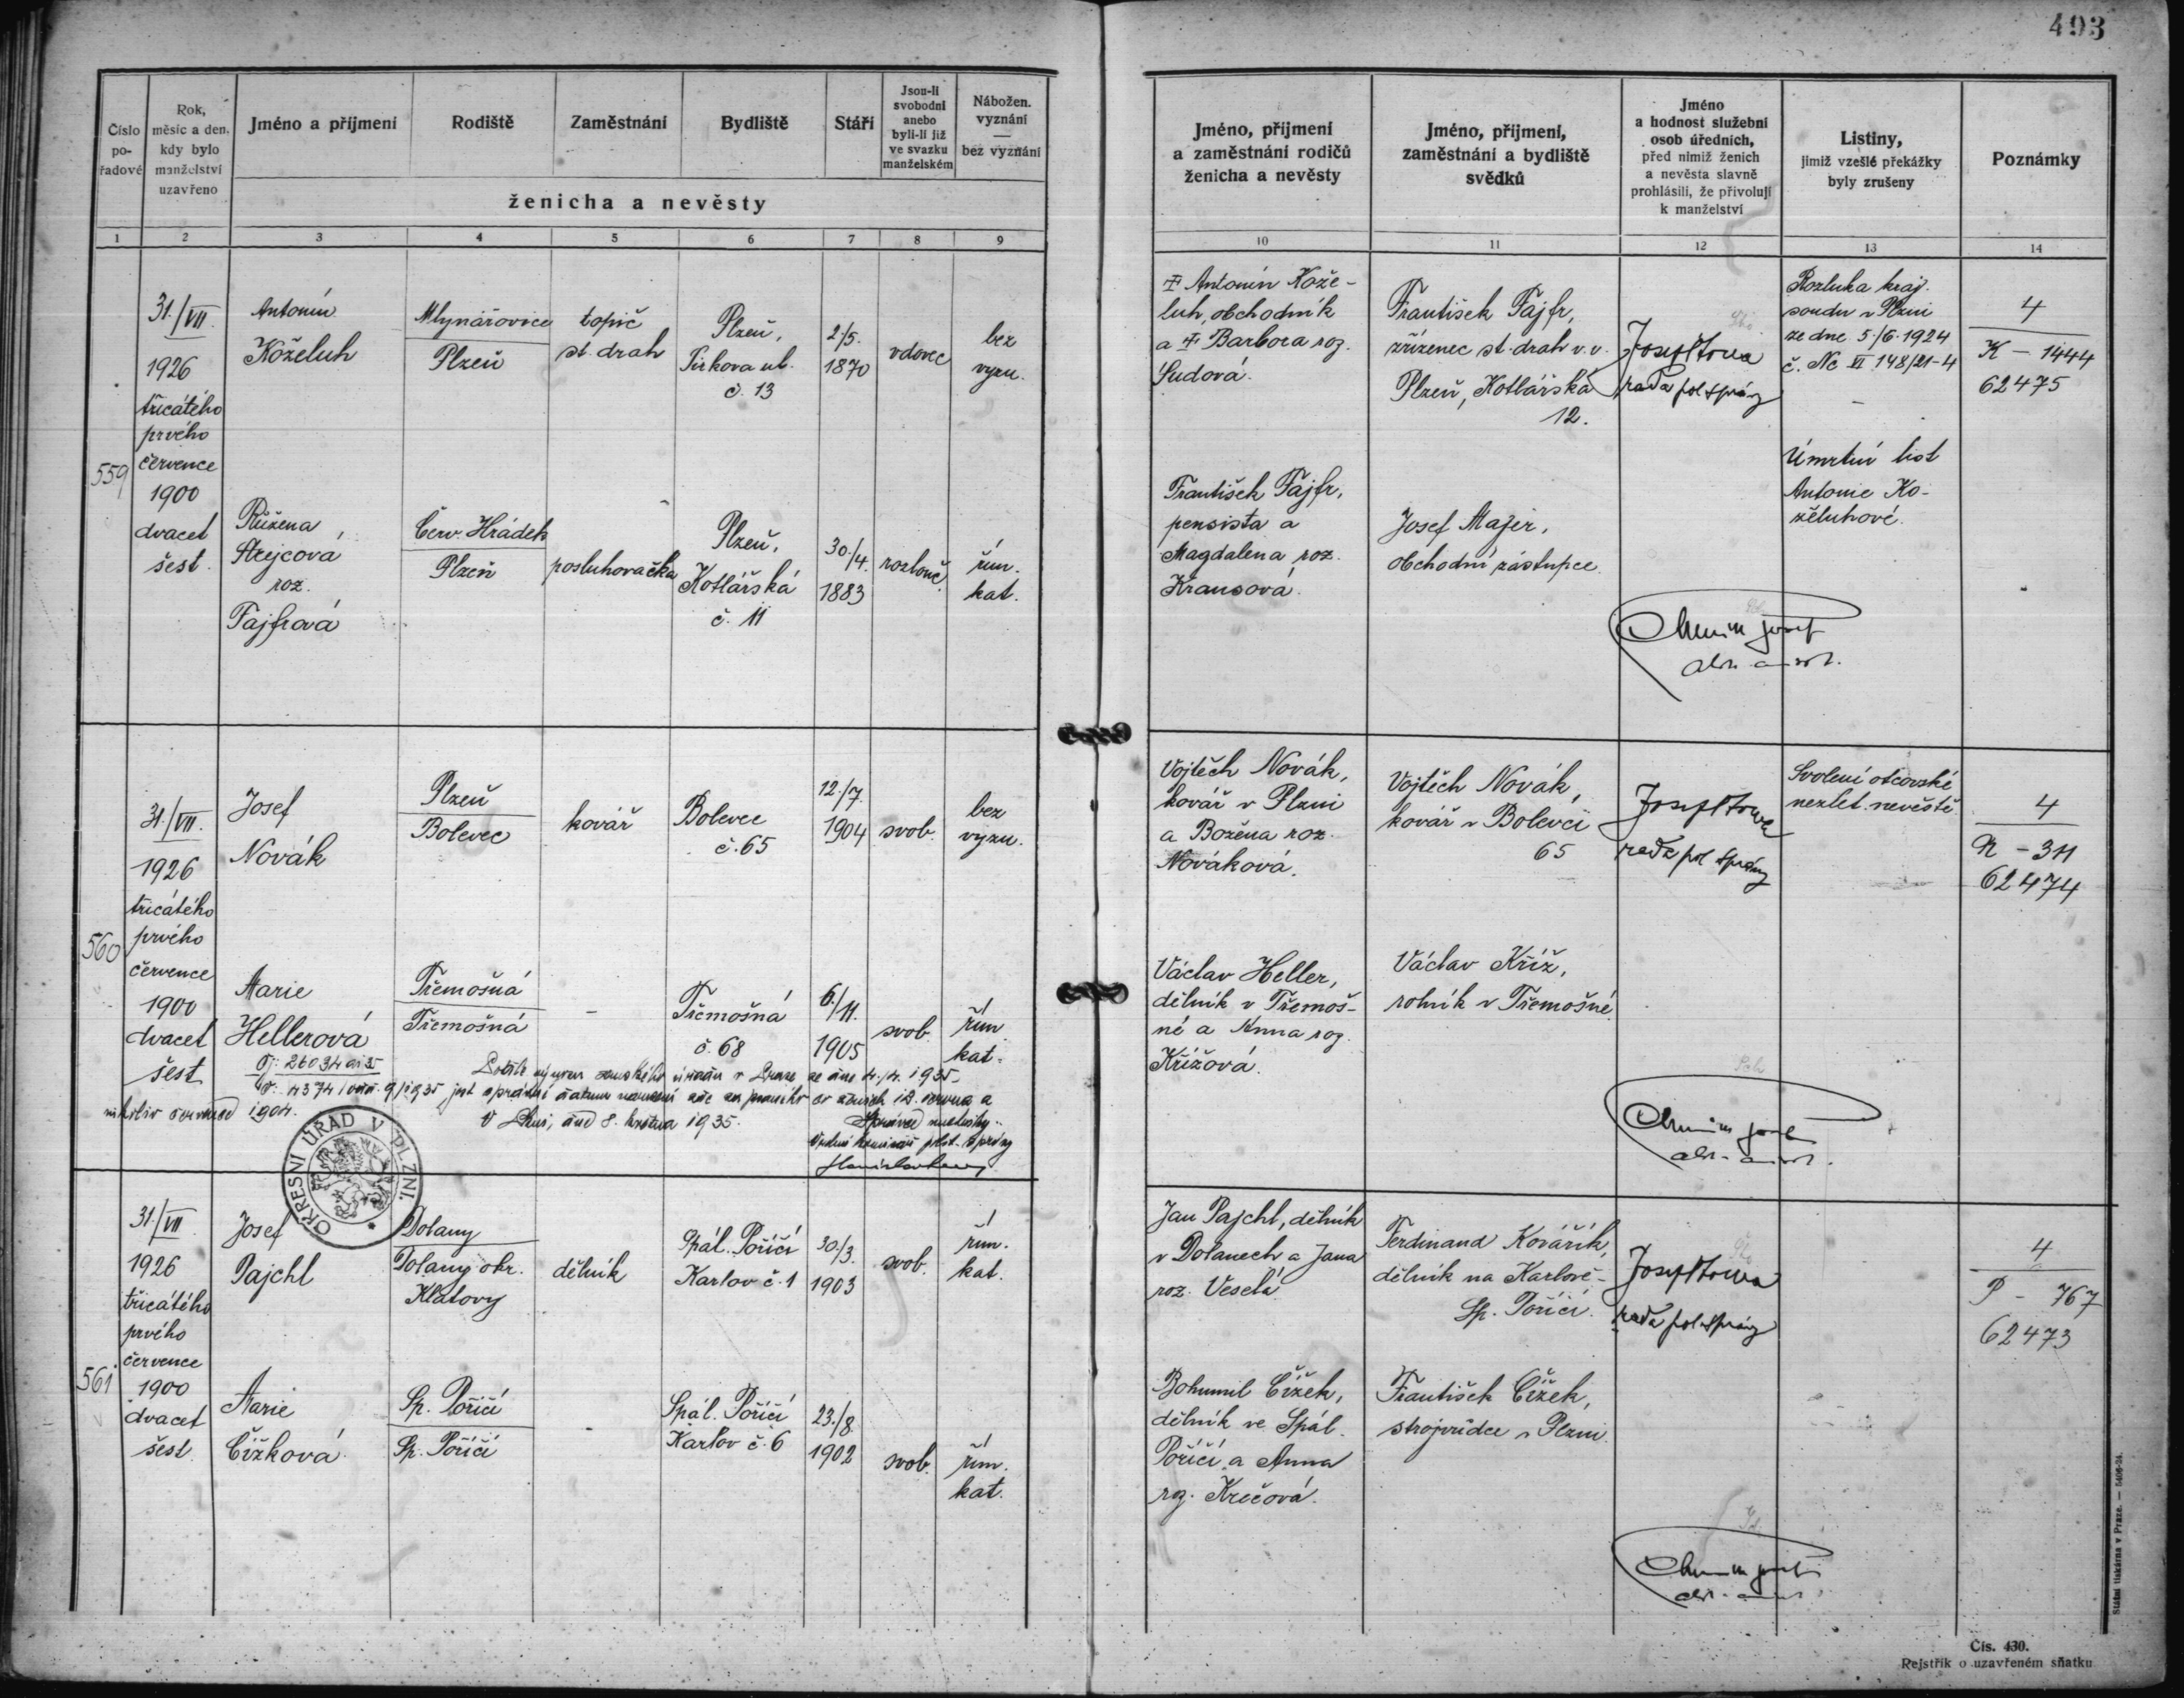 493
Číslo pořadové
Rok, měsíc a den, kdy bylo manželství uzavřeno
Jméno a příjmení
Rodiště
Zaměstnání
Bydliště
Stáří
Jsou-li svobodni anebo byli-li již ve svazku manželském
Nábožen. vyznání — bez vyznání
ženicha a nevěsty
Jméno, příjmení a zaměstnání rodičů ženicha a nevěsty
Jméno, příjmení, zaměstnání a bydliště svědků
Jméno a hodnost služební osob úředních, před nimiž ženich a nevěsta slavně prohlásili, že přivolují k manželství
Listiny, jimiž vzešlé překážky byly zrušeny
Poznámky
1 2 3 4 5 6 7 8 9 10 11 12 13 14
559
31./VII.
1926
třicátého
prvého
července
1900
dvacet
šest.
Antonín
Koželuh
Plzeň
topič
st. drah
Plzeň,
č. 13
2/5.
1870
vdovec
bez
vyzn.
Růžena
Strejcová
roz.
Fajfrová
Červ. Hrádek
Plzeň
posluhovačka
Plzeň,
Kotlářská
č. 11
30./4.
1883
rozlouč.
řím.
kat.
Antonín Kože-
luh, obchodník
a Barbora roz.
Sudová.
František Fajfr,
zřízenec st. drah v. v.
Plzeň, Kotlářská
12.
rada pol. správy
Rozluka kraj.
soudu v Plzni
ze dne 5./6. 1924
č. Nc VI 148/21-4
4
K - 1444
62475
František Fajfr,
pensista a
Magdalena roz.
Krausová.
Josef Majer,
obchodní zástupce.
Úmrtní list
Antonie Ko-
želuhové.
560
31./VII.
1926
třicátého
prvého
července
1900
dvacet
šest
Josef
Novák
Plzeň
Bolevec
kovář
Bolevec
č. 65
12./7.
1904
svob.
bez
vyzn.
Marie
Hellerová
Třemošná
Třemošná
-
Třemošná
č. 68
6./11.
1905
svob.
řím.
kat.
Vojtěch Novák,
kovář v Plzni
a Božena roz.
Nováková.
Vojtěch Novák,
kovář v Bolevci
65
rada pol. správy
Svolení otcovské
nezlet. nevěstě.
4
N - 311
62474
Václav Heller,
dělník v Třemoš-
né a Anna roz.
Křížová.
Václav Kříž,
rolník v Třemošné.
nikoliv
1904.
8. května 1935.
OKRESNÍ ÚŘAD V PLZNI.
561
31./VII
1926
třicátého
prvého
července
1900
dvacet
šest.
Josef
Pajchl
Dolany
Dolany okr.
Klatovy
dělník
Spál. Poříčí
Karlov č. 1
30./3.
1903
svob.
řím.
kat.
Marie
Čížková
Sp. Poříčí
Sp. Poříčí
-
Spál. Poříčí
Karlov č. 6
23./8.
1902
svob.
řím.
kat.
Jan Pajchl, dělník
v Dolanech a Jana
roz. Veselá
Ferdinand Kovářík,
dělník na Karlově-
Sp. Poříčí.
rada pol. správy
4
P - 767
62473
Bohumil Čížek,
dělník ve Spál.
Poříčí a Anna
roz. Krečová.
František Čížek,
strojvůdce v Plzni.
Státní tiskárna v Praze. — 5406-24.
Čís. 430.
Rejstřík o uzavřeném sňatku